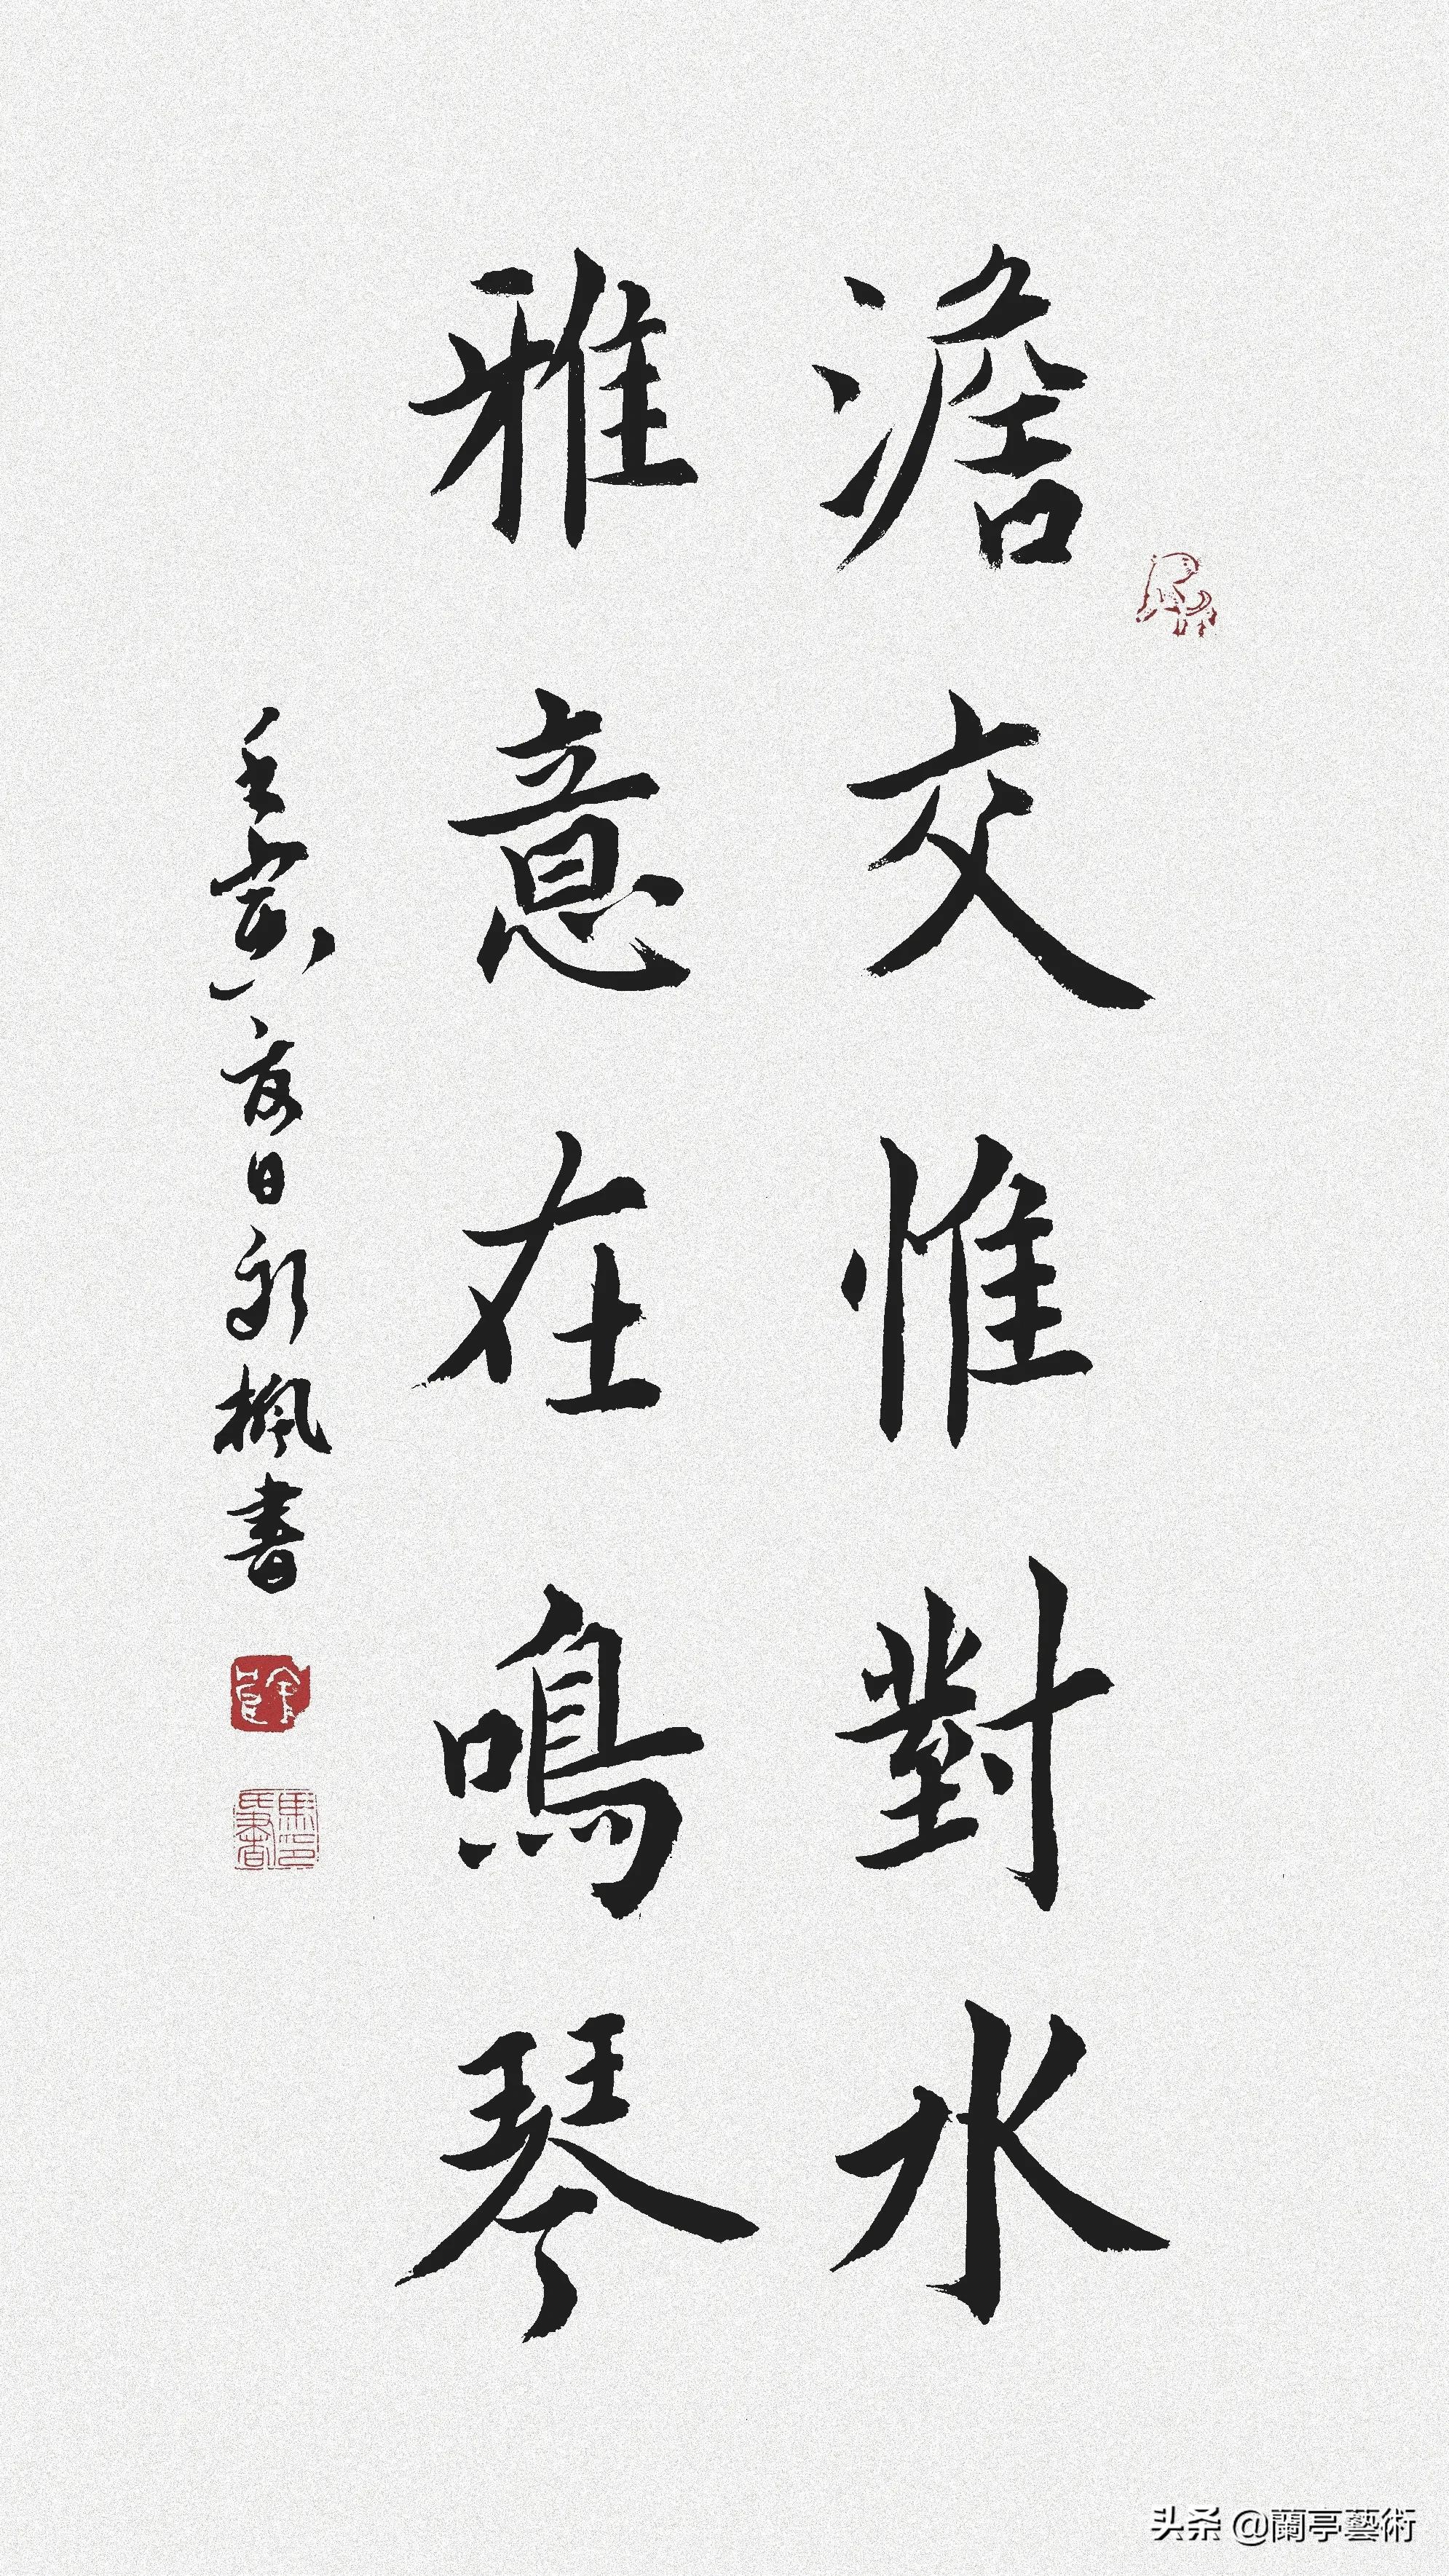 澹交惟對水
雅意在鳴琴
壬寅夏日永楓書
头条 @蘭亭藝術